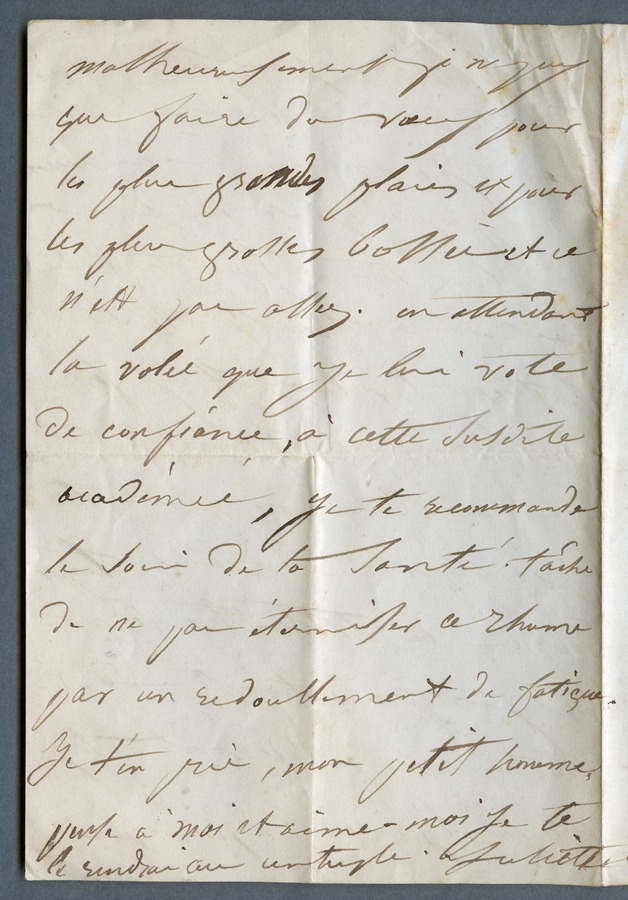 malheureusement je ne puis
que faire des vœux pour
les plus grandes plaies et pour
les plus grosses bosses et ce
n'est pas assez. en attendant
la volée que je lui vote
de confiance, à cette susdite
académie, je te recommande
le soin de ta santé. tâche
de ne pas éterniser ce rhume
par un redoublement de fatigue.
Je t'en prie, mon petit homme,
pense à moi et aime-moi je te
le rendrai au centuple. Juliette